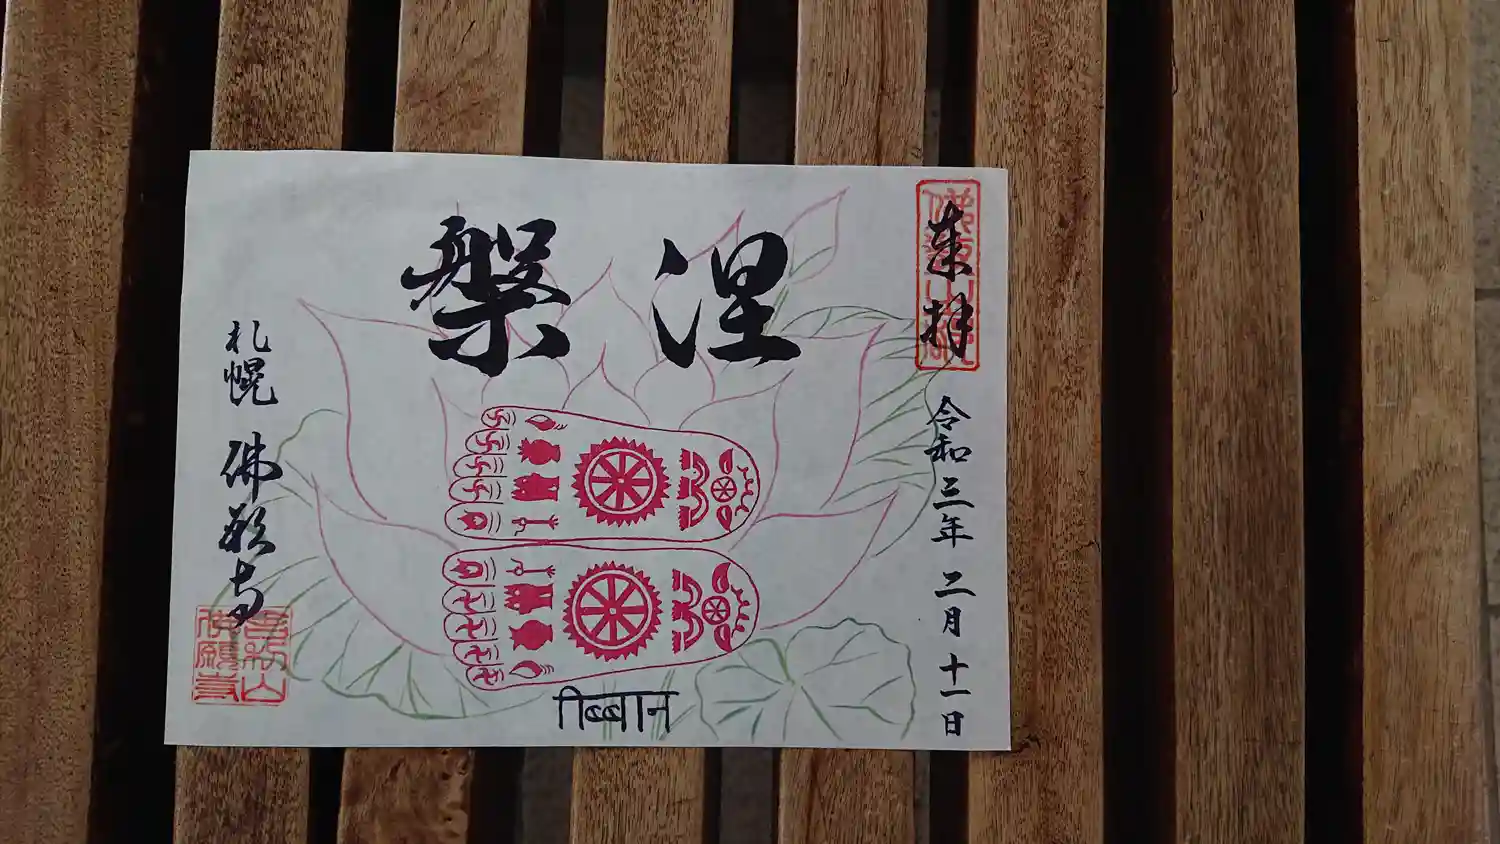 来拝
令和三年 二月 十一日
涅槃
निब्बान
札幌 佛願寺